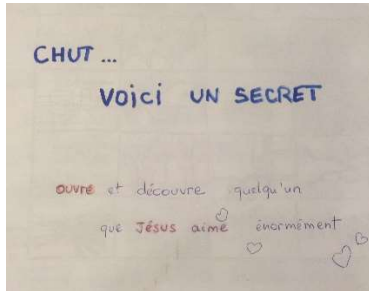 CHUT...
VOiCi UN SECRET
ouvre et découvre quelqu'un
que Jésus aime énormément